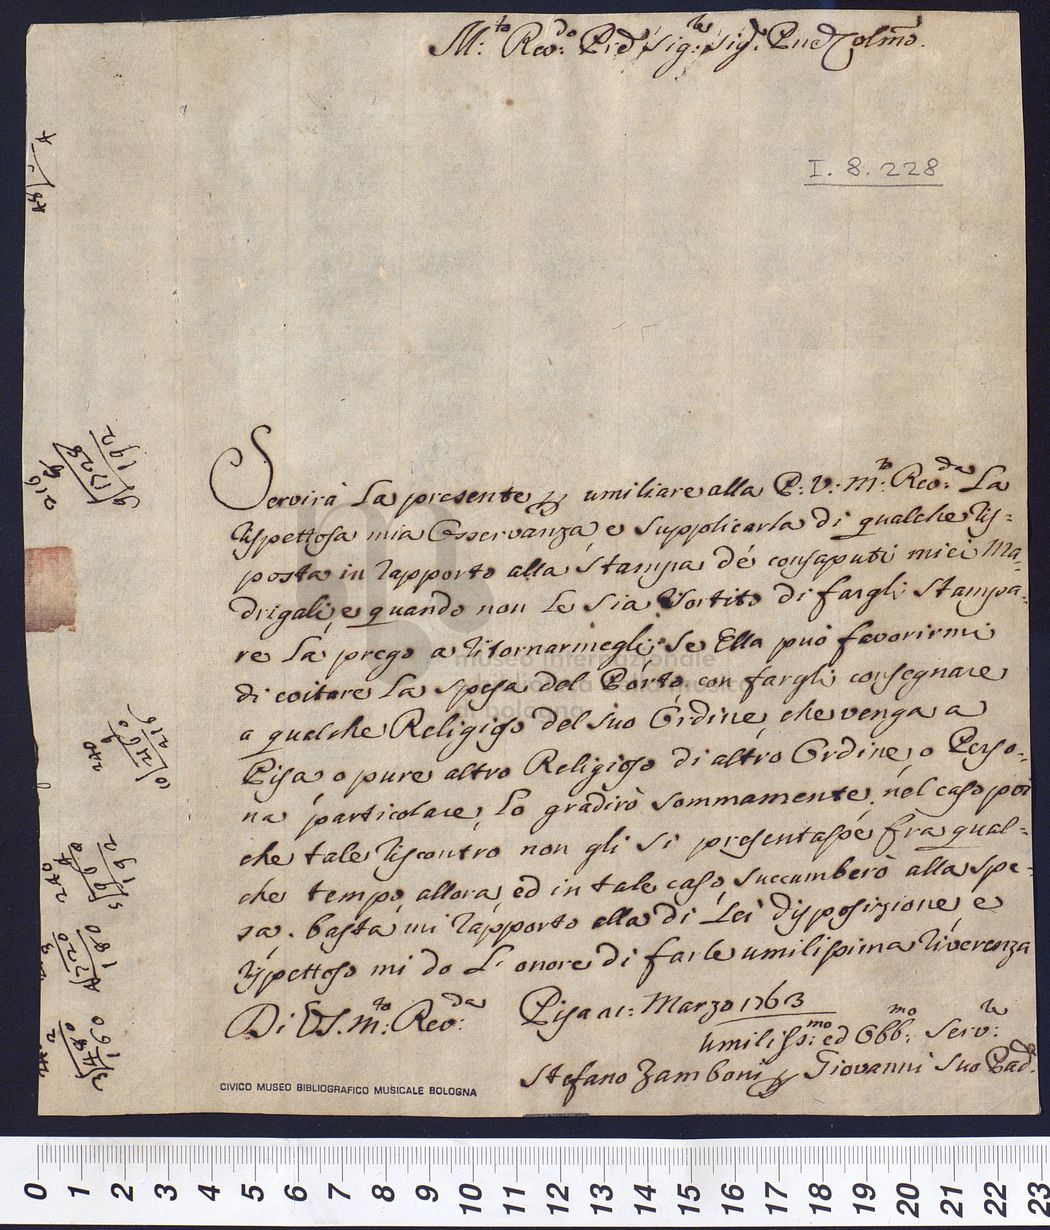 M:to Rev:do Prd Sig:re Sig.r Pne Colmo.
I. 8. 228
Servirà La presente p umiliare alla P: V: M:to Rev:da La
rispettosa mia Osservanza, e supplicarla di qualche ris=
posta in rapporto alla stampa de consaputi miei Ma=
drigali, e quando non Le sia sortito di fargli stampa=
re La prego a ritornarmegli; se Ella può favorirmi
di evitare La spesa del Porto, con fargli consegnare
a qualche Religioso del suo Ordine, che venga a
Pisa o pure altro Religioso di altro Ordine, o Perso=
na particolare, Lo gradirò sommamente, nel caso poi
che tale riscontro non gli si presentasse fra qual=
che tempo, allora, ed in tale caso, succumberò alla spe=
sa. basta, mi rapporto alla di Lei disposizione, e
rispettoso mi do L'onore di farle umilissima riverenza
Di V.S. M:to Rev:da
Pisa a 1: Marzo 1763
umiliss:mo ed Obb:mo Serv:re
Stefano Zamboni p Giovanni suo Pad.e
CIVICO MUSEO BIBLIOGRAFICO MUSICALE BOLOGNA
museo internazionale
e biblioteca della musica
di bologna
216
8
1728
9 192
240
9
10 2160
216
240
4
5 960
192
3
4 720
180
2
3 480
160
0 1 2 3 4 5 6 7 8 9 10 11 12 13 14 15 16 17 18 19 20 21 22 23